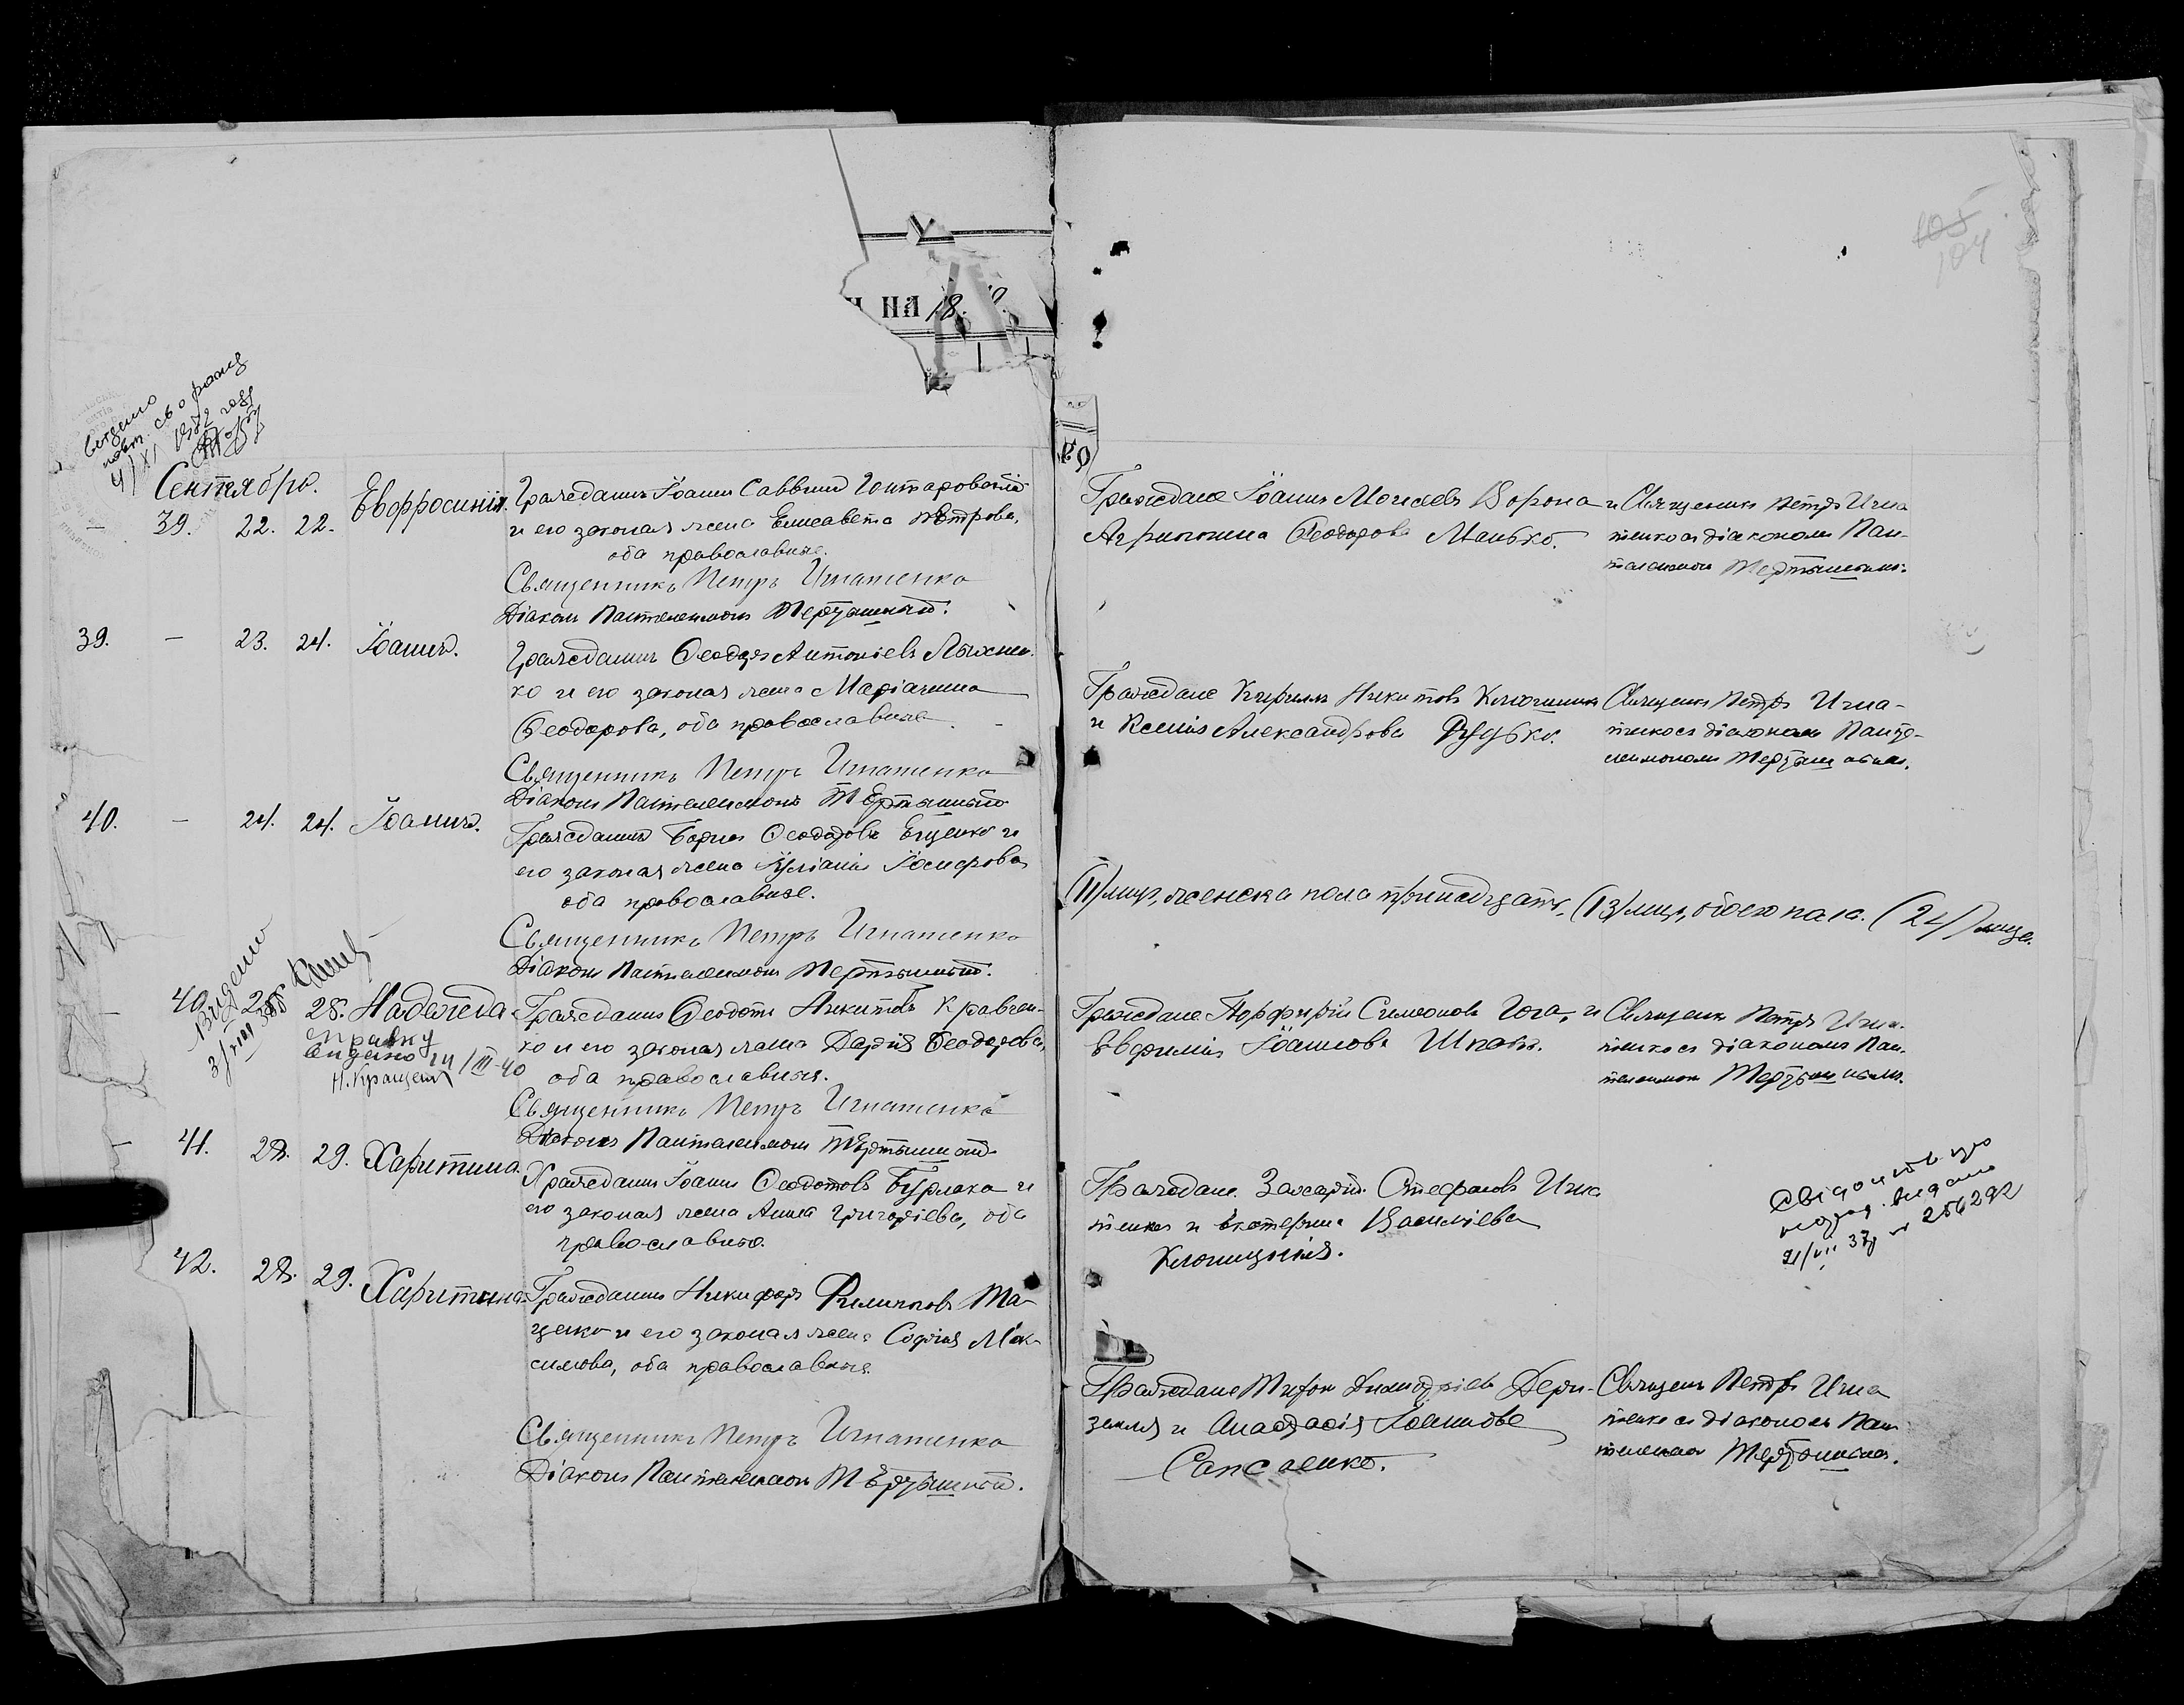 105
104
И НА 18
видено
повт. св о рожд
4/XI 1952 году
Сентябрь.
— 39. 22. 22. Евфросинія.
Гражданинъ Іоаннъ Саввинъ
и его законая жена Елисавета Петрова,
оба православные.
Священникъ Петръ Игнатенко
Діаконъ Пантелеимонъ Тертышный.
Граждане Іоаннъ Моисеевъ Ворона и
Агрипина Феодорова Манько.
Священникъ Петръ Игна
тенко съ діакономъ Пан-
телеимон Тертышнымъ.
39. — 23. 24. Іоаннъ.
Гражданинъ Феодоръ Антоніевъ
ко и его законая жена Маріанна
Феодорова, оба православные.
Священникъ Петръ Игнатенко
Діаконъ Пантелеимонъ Тертышный
Граждане Кириллъ Никитовъ
и Ксенія Александрова Рудько.
Священ Петръ Игна-
тенко съ діакономъ Панте-
леимономъ Тертышнымъ.
40. — 24. 24. Іоаннъ.
Гражданинъ Борисъ Феодоровъ Ященко и
его законая жена Іуліанія Іосифова
оба православные.
Священникъ Петръ Игнатенко
Діаконъ Пантелеимонъ Тертышный.
(11) лицъ, женска пола тринадцать, (13) лицъ, обоего пола. (24) лице.
Видено
40. 28. 28. Надежда
справку
видано 14/III-40
Гражданинъ Феодотъ Никитовъ Кравчен-
ко и его законая жена Дарія Феодорова,
оба православные.
Священникъ Петръ Игнатенко
Діаконъ Пантелеимонъ Тертышный
Граждане Порфирій Симеоновъ Гога, и
Евфимія Іоаннова Шпакъ.
Священ Петръ Игна-
тенко съ діакономъ Пан-
телеимон Тертышнымъ.
41. 28. 29. Харитина.
Гражданинъ Іоаннъ Феодотовъ Бурлака и
его законая жена Анна Григоріева, оба
православные.
Граждане Захарій Стефановъ Игна
тенко и Екатерина Василіева
Свідоцтв про
народ. видано
21/VII 37р № 256292
42. 28. 29. Харитина
Гражданинъ Никифоръ Филиповъ Ма-
ценко и его законая жена Софія Мак-
симова, оба православные.
Священникъ Петръ Игнатенко
Діаконъ Пантелеимонъ Тертышный.
Граждане Тихон Димитріевъ Дери-
земля и Анастасія Іоаннова
Сапсаенко.
Священ Петръ Игна
тенко съ діакономъ Пан
телеимон Тертышнымъ.